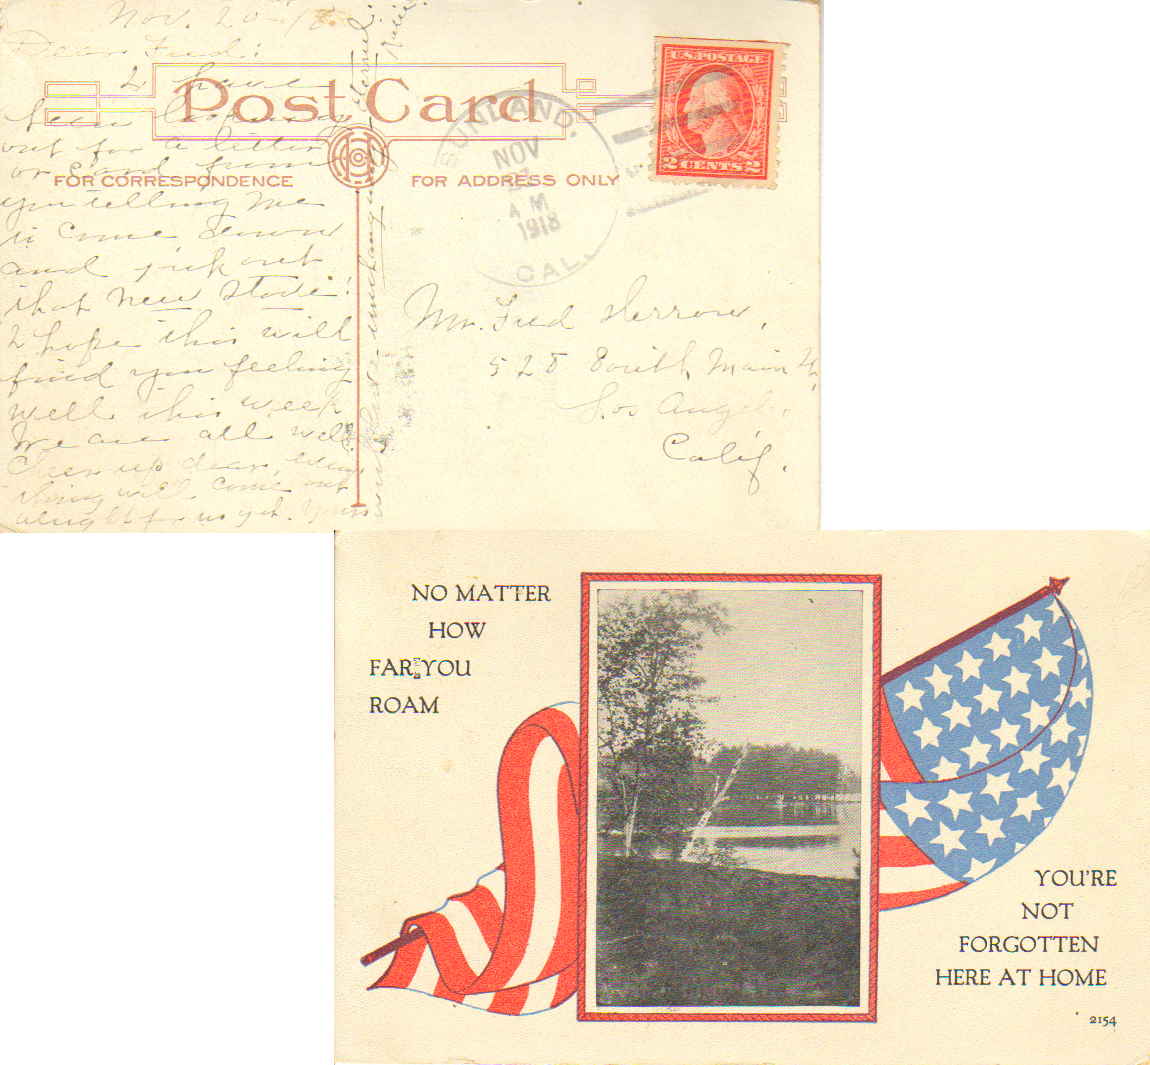 Nov. 20 - 18
Dear Fred:
I have
been looking
out for a letter
or card from
you telling me
to come down
and pick out
that new stove.
I hope this will
find you feeling
well this week
We are all well.
Cheer up dear, every
thing will come out
alright for us yet. Yours
with love unchanging &
eternal.
Post Card
FOR CORRESPONDENCE
FOR ADDRESS ONLY
SUNLAND.
NOV
A M
1918
CAL.
U.S. POSTAGE
2 CENTS 2
Mr. Fred Herrow,
528 South Main St,
Los Angeles,
Calif.
NO MATTER
HOW
FAR YOU
ROAM
YOU'RE
NOT
FORGOTTEN
HERE AT HOME
2154